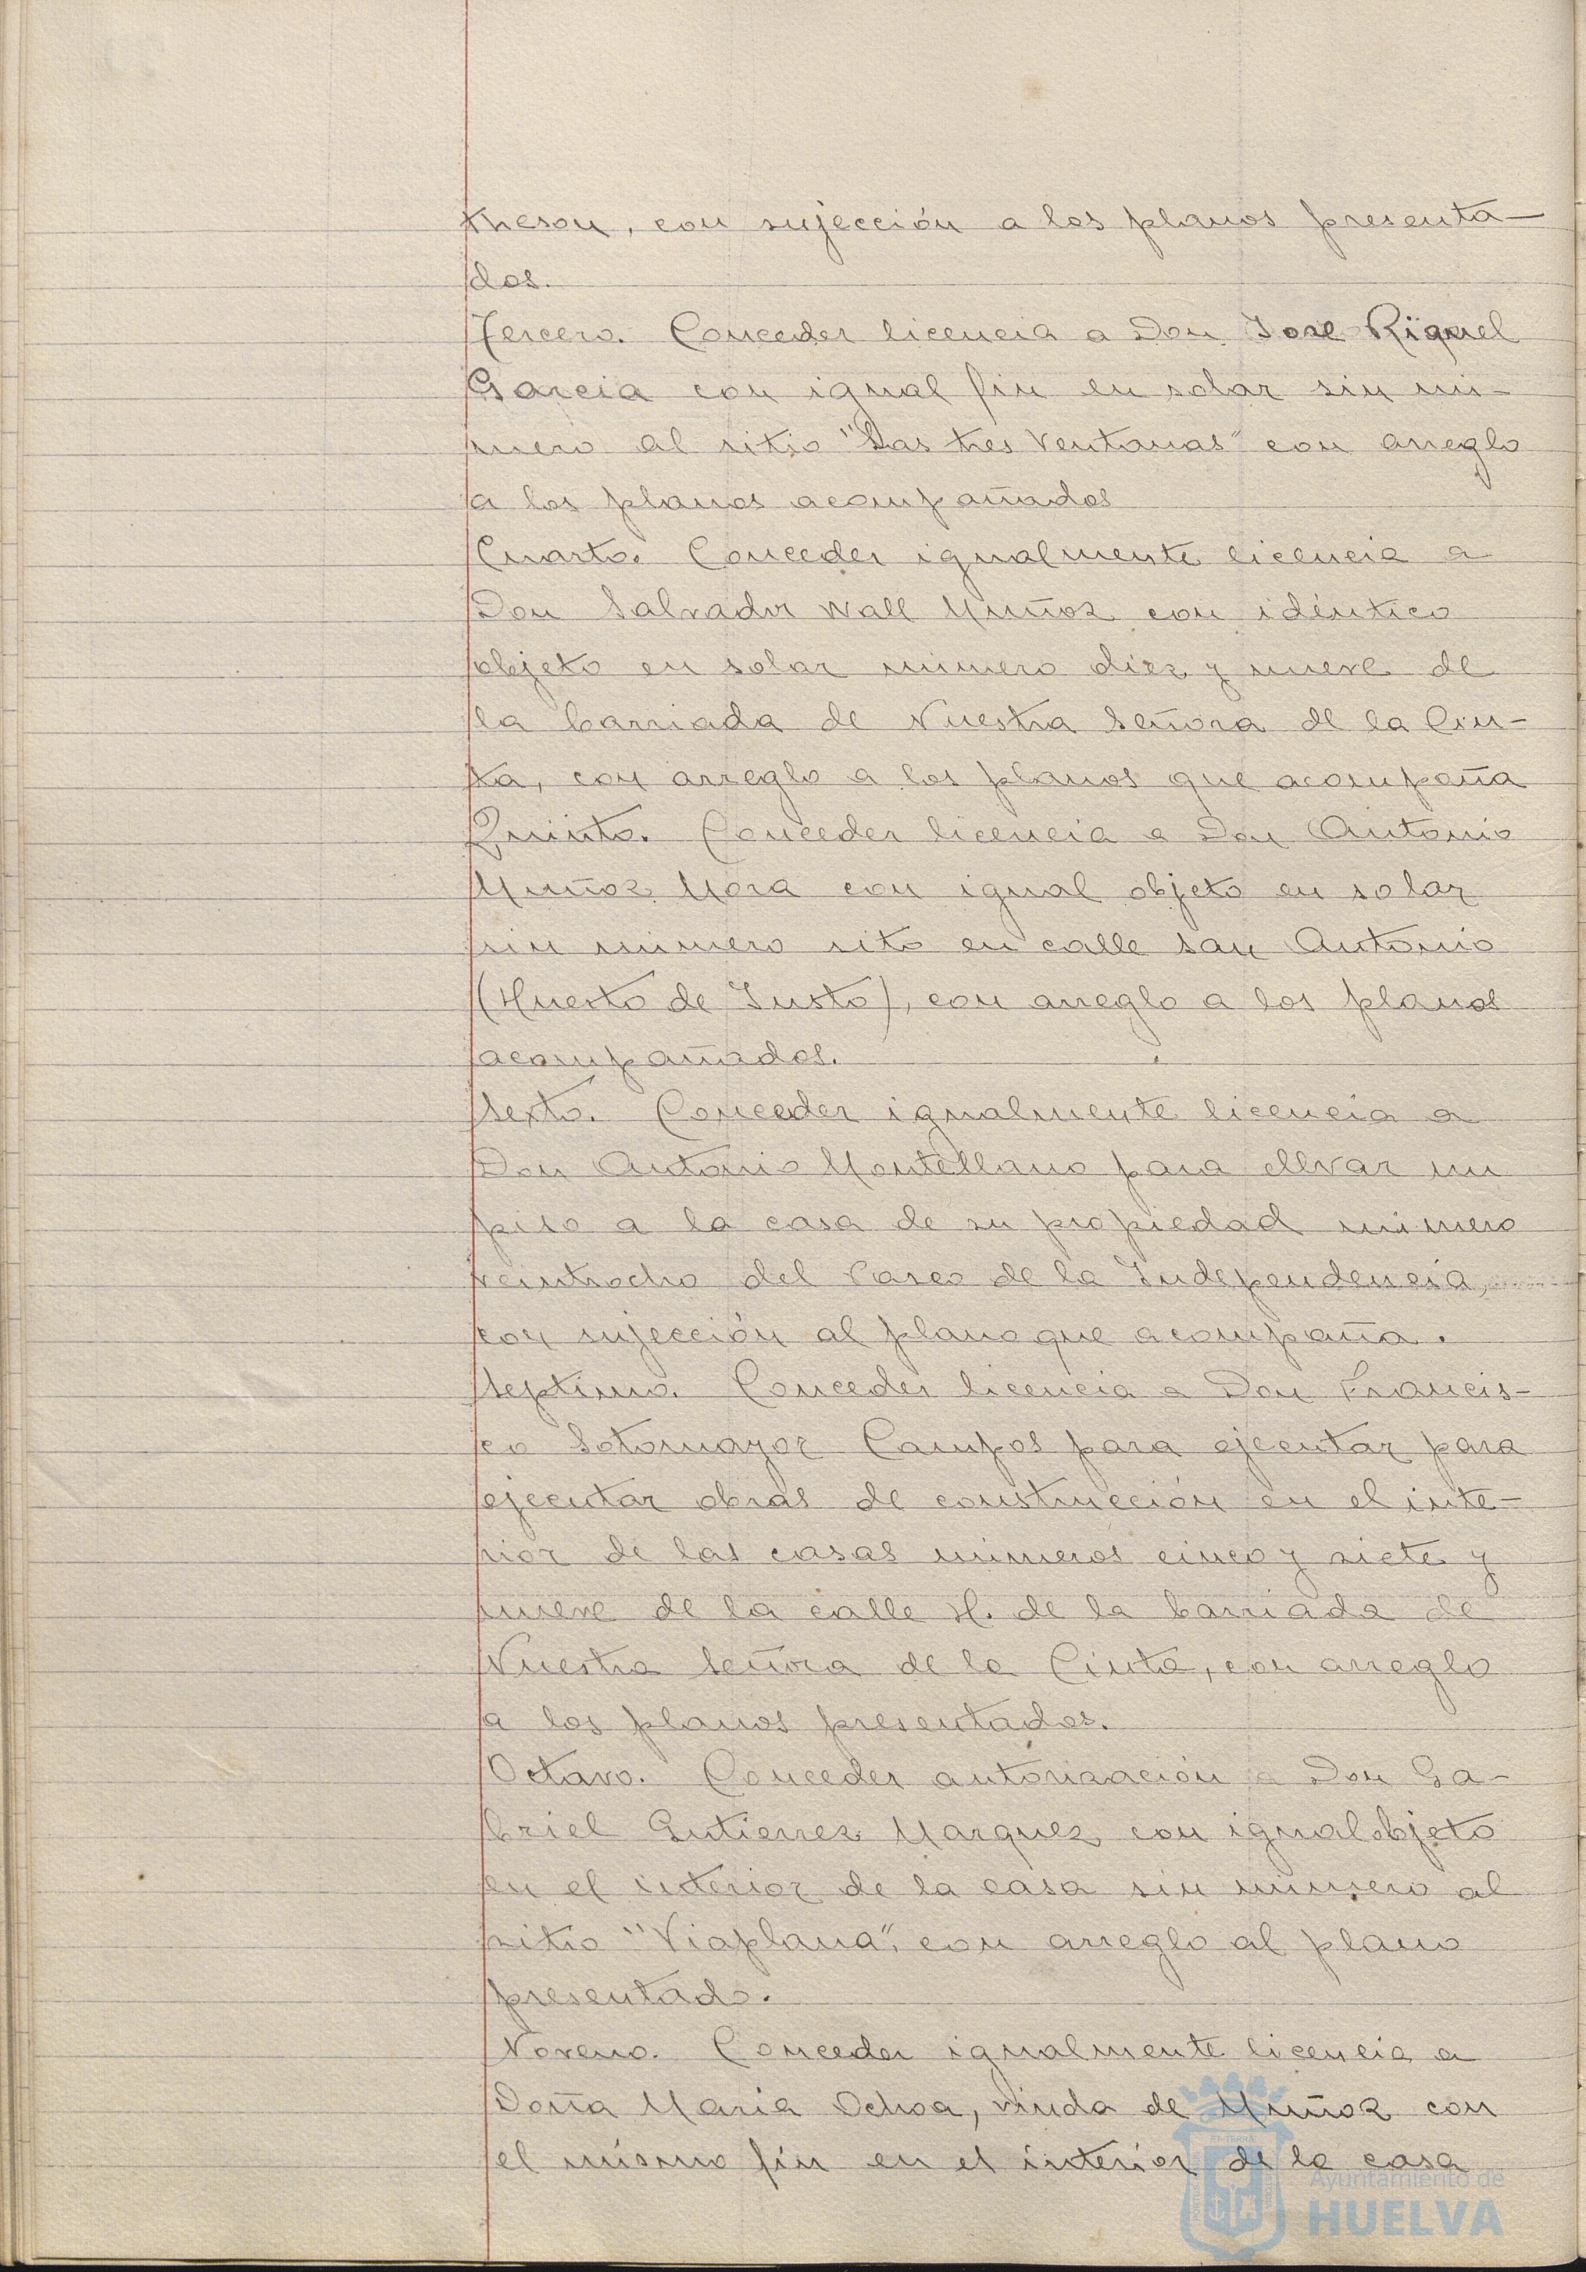 theson, con sujección a los planos presenta-
dos.
Tercero. Conceder licencia a Don Jose Riquel
Garcia con igual fin en solar sin nú-
mero al sitio "Las tres Ventanas" con arreglo
a los planos acompañados
Cuarto. Conceder igualmente licencia a
Don Salvador Wall Muñoz con idéntico
objeto en solar número diez y nueve de
la barriada de Nuestra Señora de la Cin-
ta, con arreglo a los planos que acompaña
Quinto. Conceder licencia a Don Antonio
Muñoz Mora con igual objeto en solar
sin número sito en calle San Antonio
(Huerto de Justo), con arreglo a los planos
acompañados.
Sexto. Conceder igualmente licencia a
Don Antonio Montellano para ellvar un
piso a la casa de su propiedad número
veintiocho del Paseo de la Independencia,
con sujección al plano que acompaña.
Septimo. Conceder licencia a Don Francis-
co Sotomayor Campos para ejecutar para
ejecutar obras de construcción en el inte-
rior de las casas números cinco y siete y
nueve de la calle H. de la barriada de
Nuestra Señora de la Cinta, con arreglo
a los planos presentados.
Octavo. Conceder autorización a Don Ga-
briel Gutierrez Marquez con igual objeto
en el interior de la casa sin número al
sitio "Viaplana", con arreglo al plano
presentado.
Noveno. Conceder igualmente licencia a
Doña María Ochoa, viuda de Muñoz con
el mismo fin en el interior de la casa
Ayuntamiento de
HUELVA